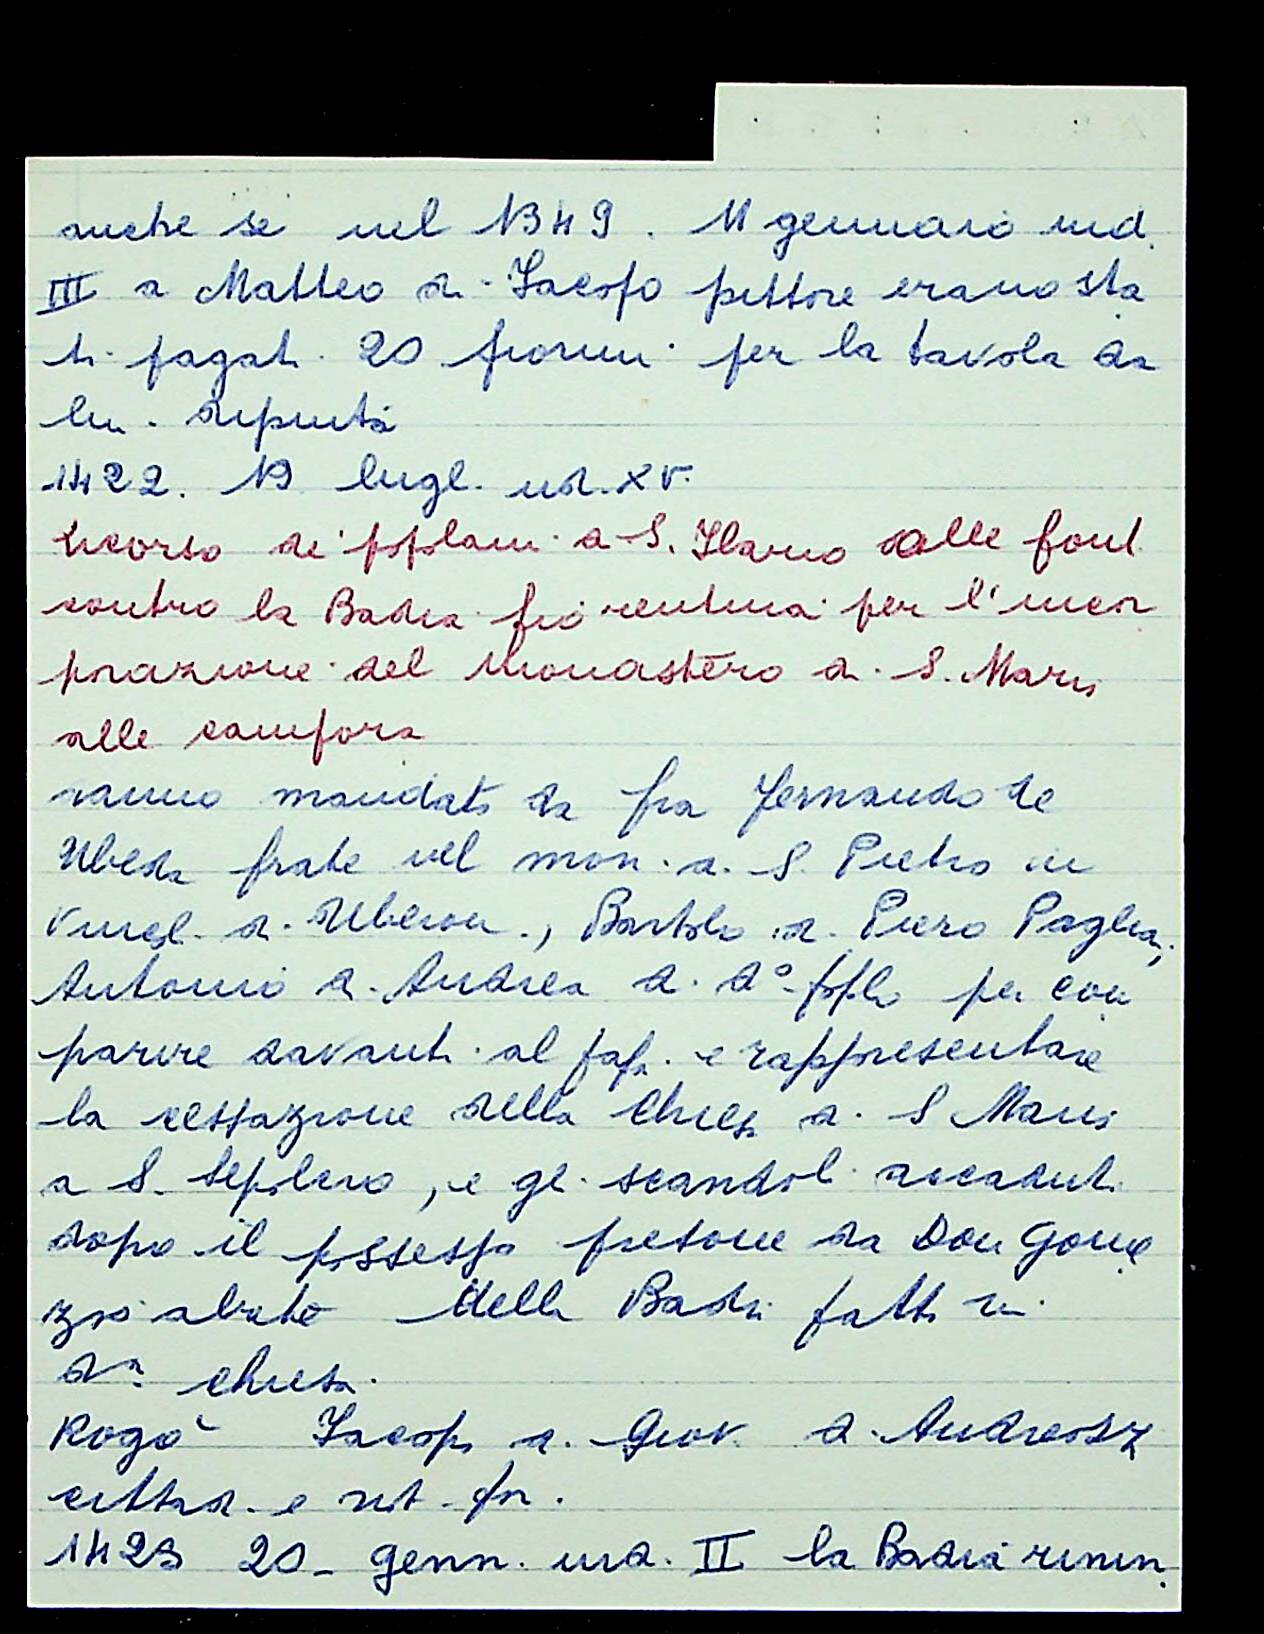 anche se nel 1349. 11 gennaio ind.
III a Matteo di Iacopo pittore erano sta
ti pagati 20 fiorini per la tavola da
lui dipinta
1422. 19 lugl. ind. XV.
ricorso dei popolani di S. Ilario alle fonti
contro la Badia fiorentina per l'incor
porazione del monastero di S. Maria
alle campora
vanno mandati da fra Fernando de
Ubeda frate nel mon. di S. Pietro in
Vincol. di, Bartolo di Piero Paglia,
Antonio di Andrea di d° popolo per com
parire davanti al papa e rappresentare
la cessazione della chiesa di S Maria
a S. Sepolcro, e gl. scandol. accaduti
dopo il possesso da Don Gome
zio abate della Badia fatto in
da chiesa.
Rogò Iacopo di Giov. d. Andreozz
cittad. e not. fior.
1423 20 - genn. ind. II la Badia rinun.